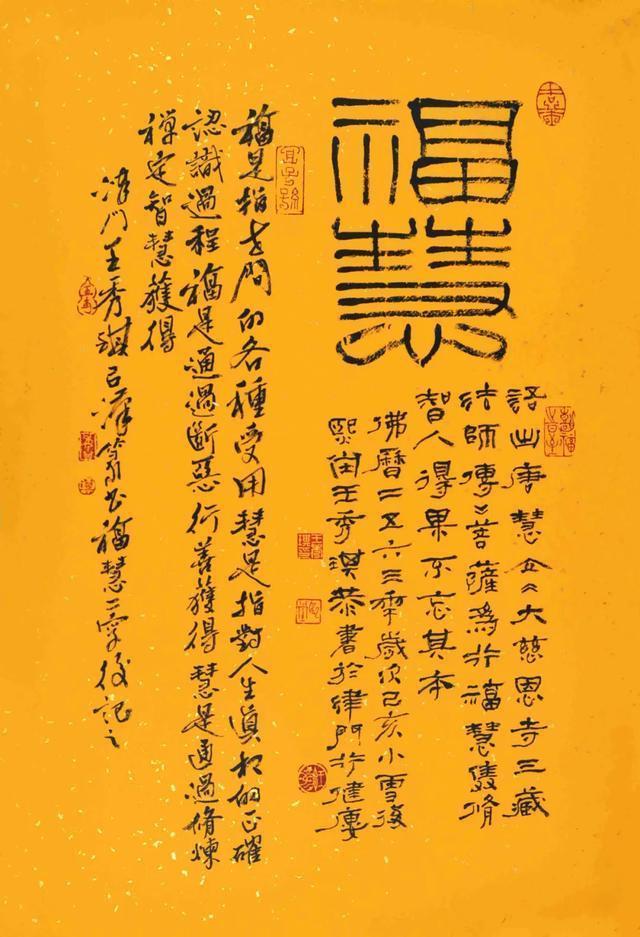 福慧
語出唐慧立《大慈恩寺三藏
法師傳》菩薩為行福慧雙脩
智人得果不忘其本
佛曆二五六三年歲次己亥小雪後
王秀琪恭書於津門行健廔
宜子孫
福是指世間的各種受用慧是指對人生真相的正確
認識過程福是通過斷惡行善獲得慧是通過脩煉
禪定智慧獲得
津門王秀琪㠯漢篆書福慧二字後記之